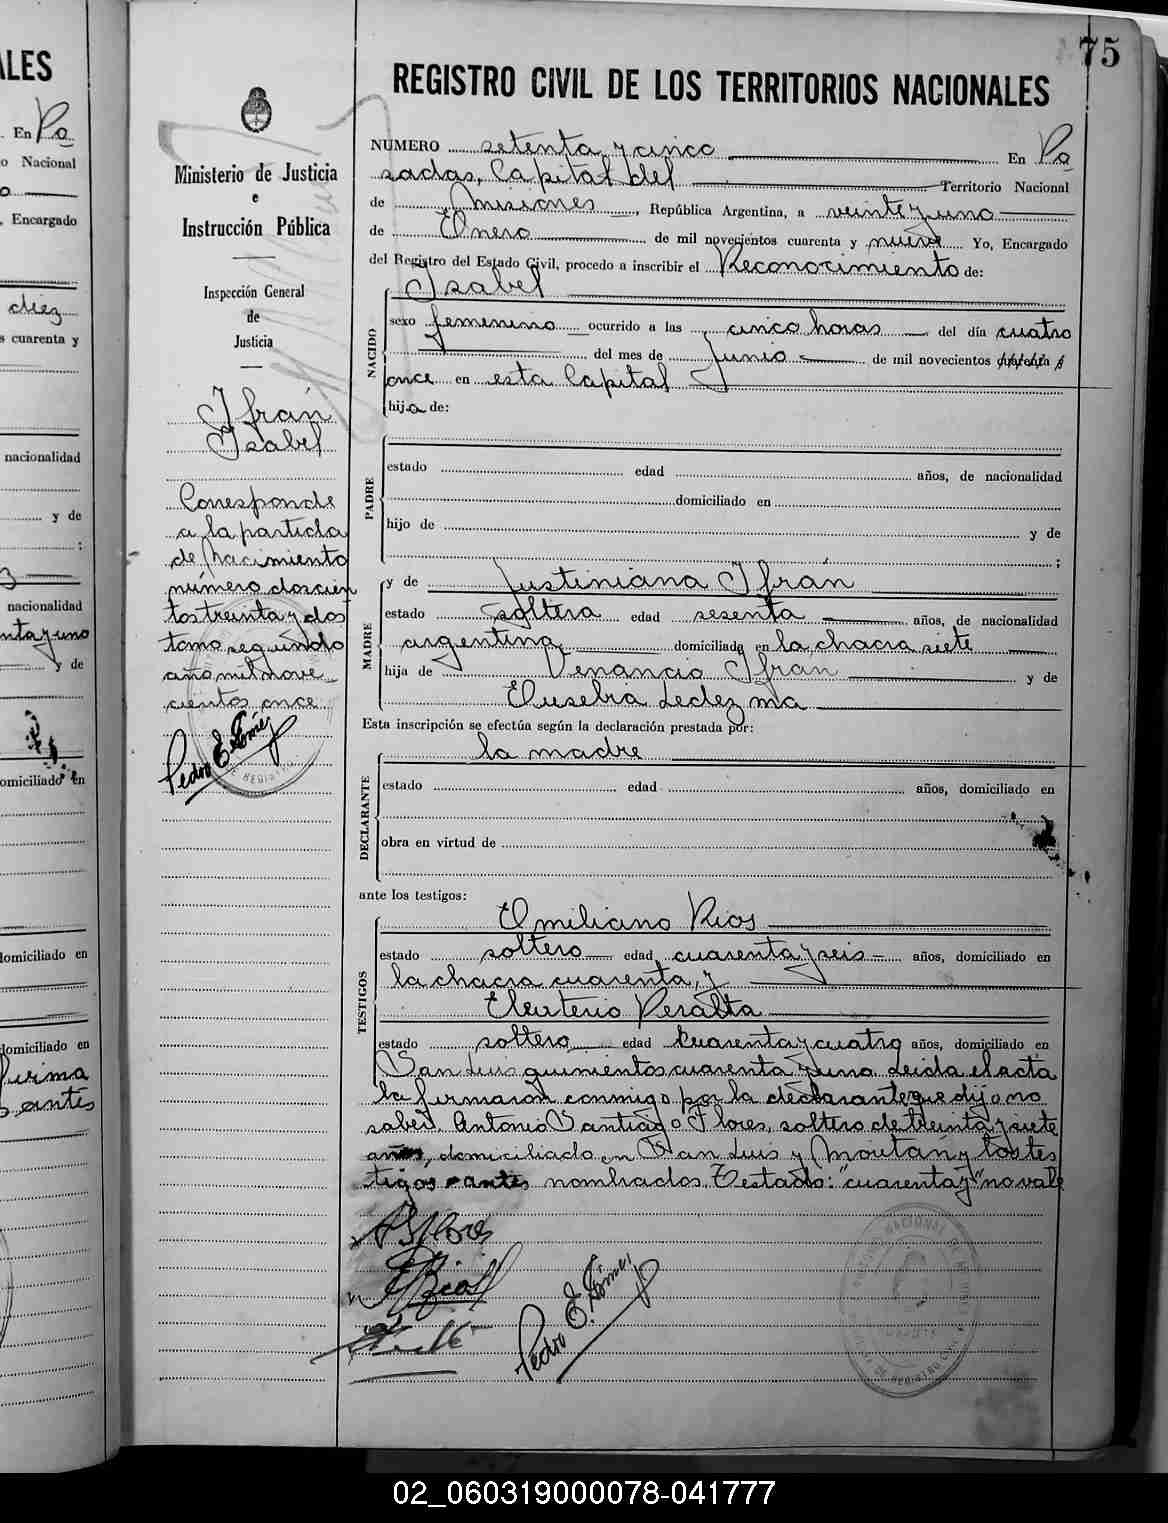 75
REGISTRO CIVIL DE LOS TERRITORIOS NACIONALES
Ministerio de Justicia
e
Instrucción Pública
Inspección General
de
Justicia
Ifrán
Isabel
Corresponde
a la partida
de Nacimiento
número doscien
tos treinta y dos
tomo segundo
año mil nove
cientos once
Pedro E. Gómez
NUMERO setenta y cinco En Po
sadas, Capital del Territorio Nacional
de Misiones, República Argentina, a veinte y uno
de Enero de mil novecientos cuarenta y nueve Yo, Encargado
del Registro del Estado Civil, procedo a inscribir el Reconocimiento de:
Isabel
NACIDO
sexo femenino ocurrido a las cinco horas del día cuatro
del mes de Junio de mil novecientos
once en esta Capital
hija de:
PADRE
estado edad años, de nacionalidad
domiciliado en
hijo de y de
;
MADRE
y de Justiniana Ifrán
estado soltera edad sesenta años, de nacionalidad
argentina domiciliada en la chacra siete
hija de Venancio Ifran y de
Eusebia Ledezma
Esta inscripción se efectúa según la declaración prestada por:
la madre
DECLARANTE
estado edad años, domiciliado en
obra en virtud de
ante los testigos:
TESTIGOS
Emiliano Rios
estado soltero edad cuarenta y seis años, domiciliado en
la chacra cuarenta, y
Eleuterio Peralta
estado soltero edad cuarenta y cuatro años, domiciliado en
San Luis quinientos cuarenta y uno. Leida el acta
la firmaron conmigo por la declarante que dijo no
saber, Antonio Santiago Flores, soltero de treinta y siete
años, domiciliado en San Luis y Moután y los tes
tigos antes nombrados. Testado: "cuarenta y" no vale
Pedro E. Gómez
ALES
En Po
o Nacional
, Encargado
diez
s cuarenta y
nacionalidad
y de
;
nacionalidad
nta y uno
y de
omiciliado en
domiciliado en
domiciliado en
firma
s antes
02_060319000078-041777